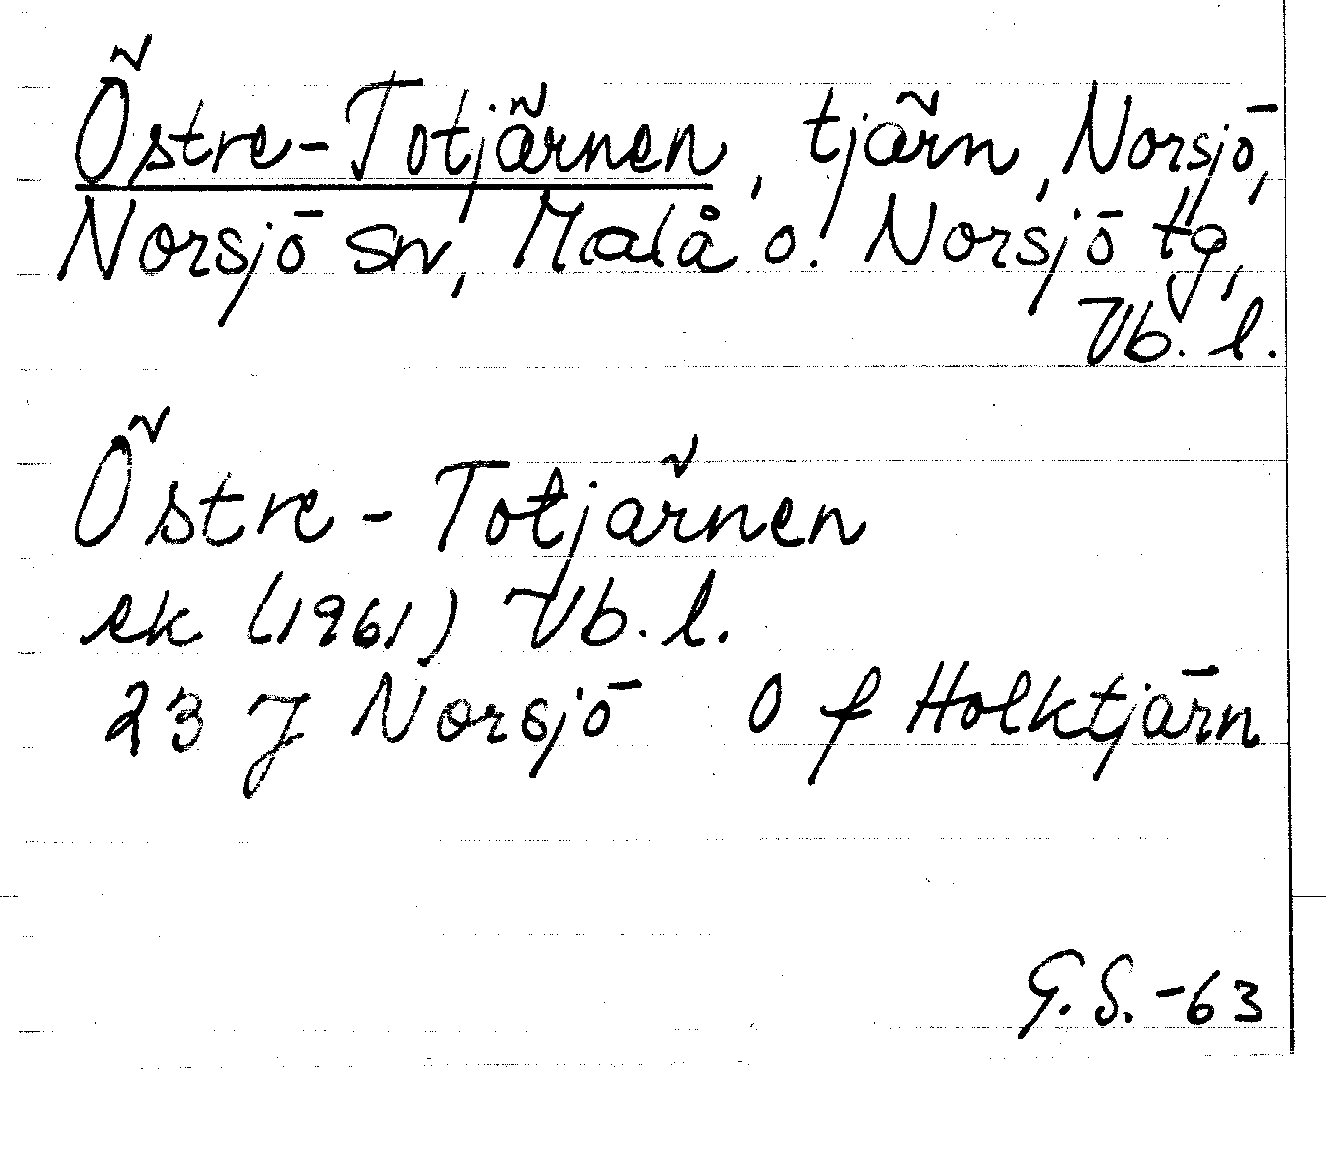 Östre-Totjärnen, tjärn, Norsjö,
Norsjö sn, Malå o. Norsjö tg,
Vb. l.
Östre-Totjärnen
ek (1961) Vb. l.
23 J Norsjö O f Holktjärn
G.S.-63